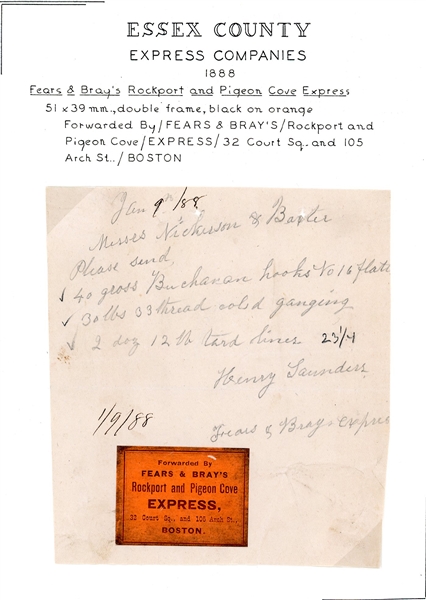 ESSEX COUNTY
EXPRESS COMPANIES
1888
Fears & Bray's Rockport and Pigeon Cove Express
51 x 39 mm., double frame, black on orange
Forwarded By/FEARS & BRAY'S/Rockport and
Pigeon Cove/EXPRESS/32 Court Sq. and 105
Arch St../BOSTON
Jan 9th/88
Messrs Nickerson & Baxter
Please send,
✓ 40 gross Buchanan hooks No 16 flate
✓ 30 lbs 33 thread ganging
✓ 2 doz 12 lb tard lines 23/4
Henry Saunders
1/9/88
Fears & Bray's Expres
Forwarded By
FEARS & BRAY'S
Rockport and Pigeon Cove
EXPRESS,
32 Court Sq., and 105 Arch St.,
BOSTON.